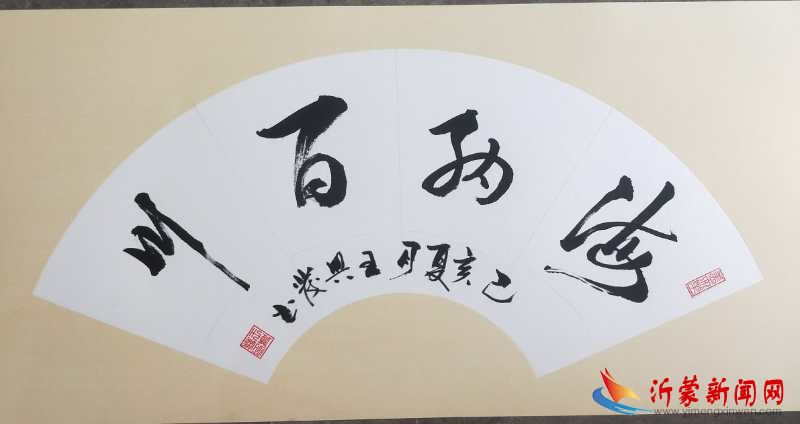 海纳百川
己亥夏月王兴发书
沂蒙新闻网
www.yimengxinwen.com